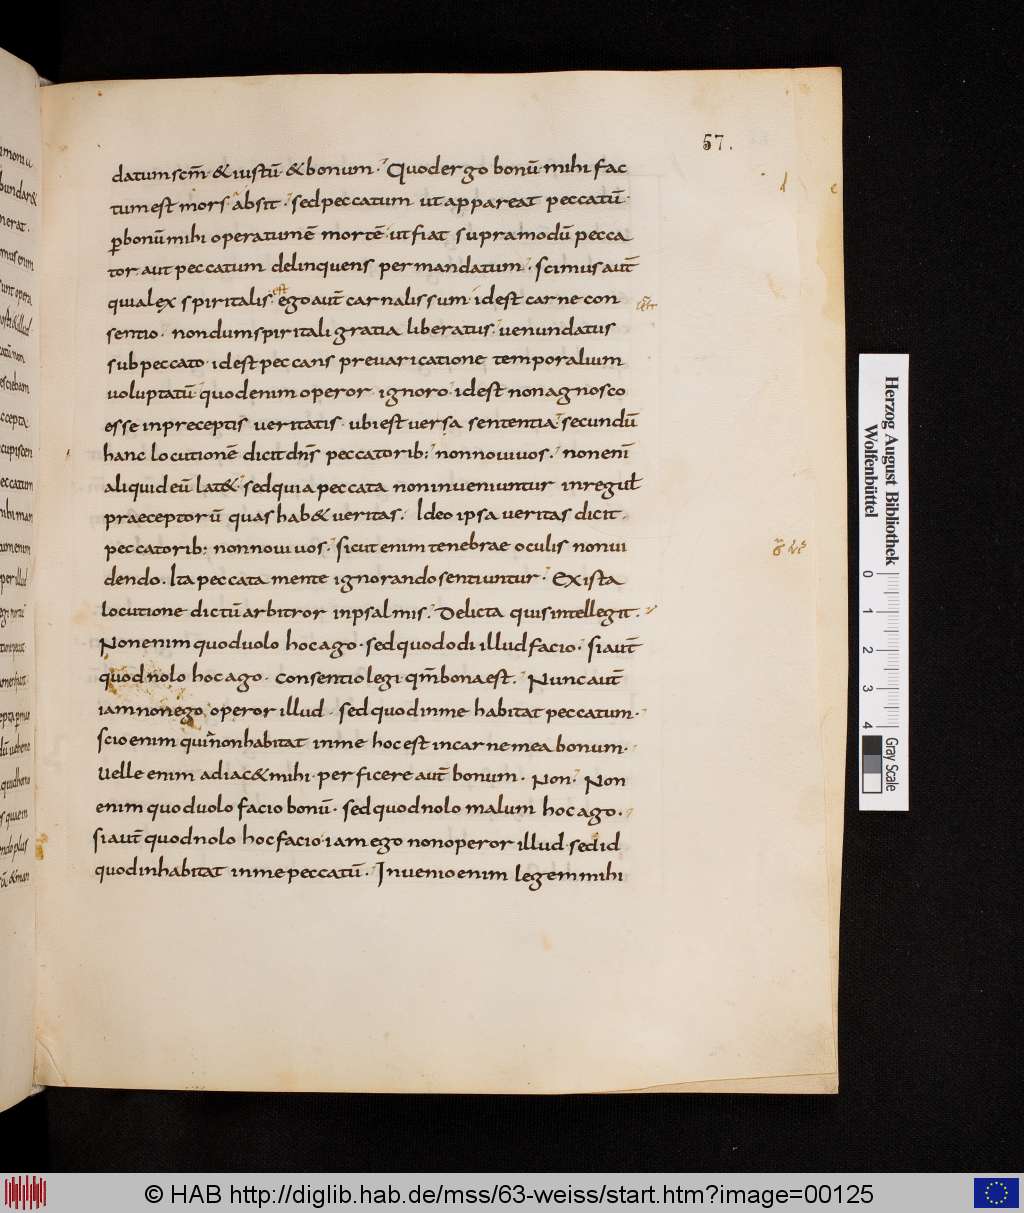 57.
datum scm̄ & iustū & bonum. Quod ergo bonū mihi fac
tum est mors absit. sed peccatum ut appareat peccatū
p̱ bonū mihi operatum ē mortē ut fiat supra modū pecca
tor aut peccatum delinquens per mandatum. scimus aut̄
quia lex spiritalis est ego aut̄ carnalis sum idest carne con
sentio. nondum spiritali gratia liberatus. uenundatus
sub peccato idest peccans preuaricatione temporalium
uoluptatū quod enim operor ignoro idest non agnosco
esse in preceptis ueritatis ubi est uersa sententia secundū
hanc locutionē dicit dn̄s peccatorib: non noui uos. non enī
aliquid eū lat& sed quia peccata non inueniuntur in regul
praeceptorū quas hab& ueritas. Ideo ipsa ueritas dicit
peccatorib: non noui uos. sicut enim tenebrae oculis non ui
dendo. Ita peccata mente ignorando sentiuntur. Ex ista
locutione dictū arbitror in psalmis. Delicta quis intellegit.
Non enim quod uolo hoc ago. sed quod odi illud facio. si aut̄
quod nolo hoc ago. consentio legi qm̄ bona est. Nunc aut̄
iam non ego operor illud. sed quod in me habitat peccatum.
scio enim qui non habitat in me hoc est in carne mea bonum.
Uelle enim adiac& mihi perficere aut̄ bonum. Non. Non
enim quod uolo facio bonū. sed quod nolo malum hoc ago.
si aut̄ quod nolo hoc facio iam ego non operor illud sed id
quod inhabitat in me peccatū. Inuenio enim legem mihi
Herzog August Bibliothek
Wolfenbüttel
0 1 2 3 4
Gray Scale
© HAB http://diglib.hab.de/mss/63-weiss/start.htm?image=00125